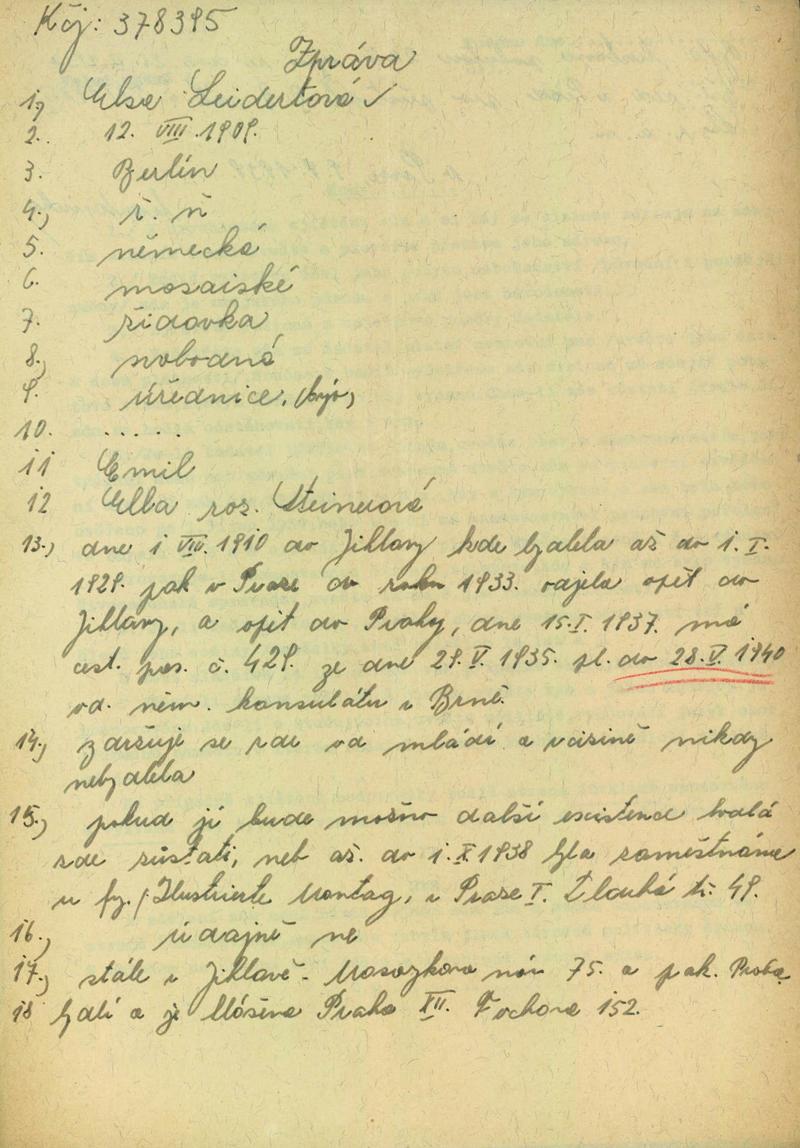 Kčj: 378395
Zpráva
1, Elsa Seidertová ✓
2. 12. VIII. 1909.
3. Berlín
4., ř. ň
5. německá
6. mosaiské
7. židovka
8., svobodná
9. úřednice, (býv,)
10. . . . . .
11 Emil
12 Ella roz. Steinerová
13., dne 1 VIII. 1910 do Jihlavy kde bydlela až do 1. I.
1929. pak v Praze do roku 1933. odjela opět do
Jihlavy, a opět do Prahy, dne 15. I. 1937. má
cest. pas. č. 429. ze dne 29. V. 1935. pl. do 28. V. 1940
od. něm. konsulátu v Brně.
14., zdržuje se zde od mládí a v cizině nikdy
nebydlela
15., pokud jí bude možno další existence hodlá
zde zůstati, neb až. do 1. X 1938 byla zaměstnána
u fy. Ilustrierte Montag, v Praze I. Dlouhá tř. 49.
16., údajně ne
17., stále v Jihlavě - Masarykovo nám 75. a pak. Praha
18 bydlí a je hlášena Praha XII. Fochova 152.